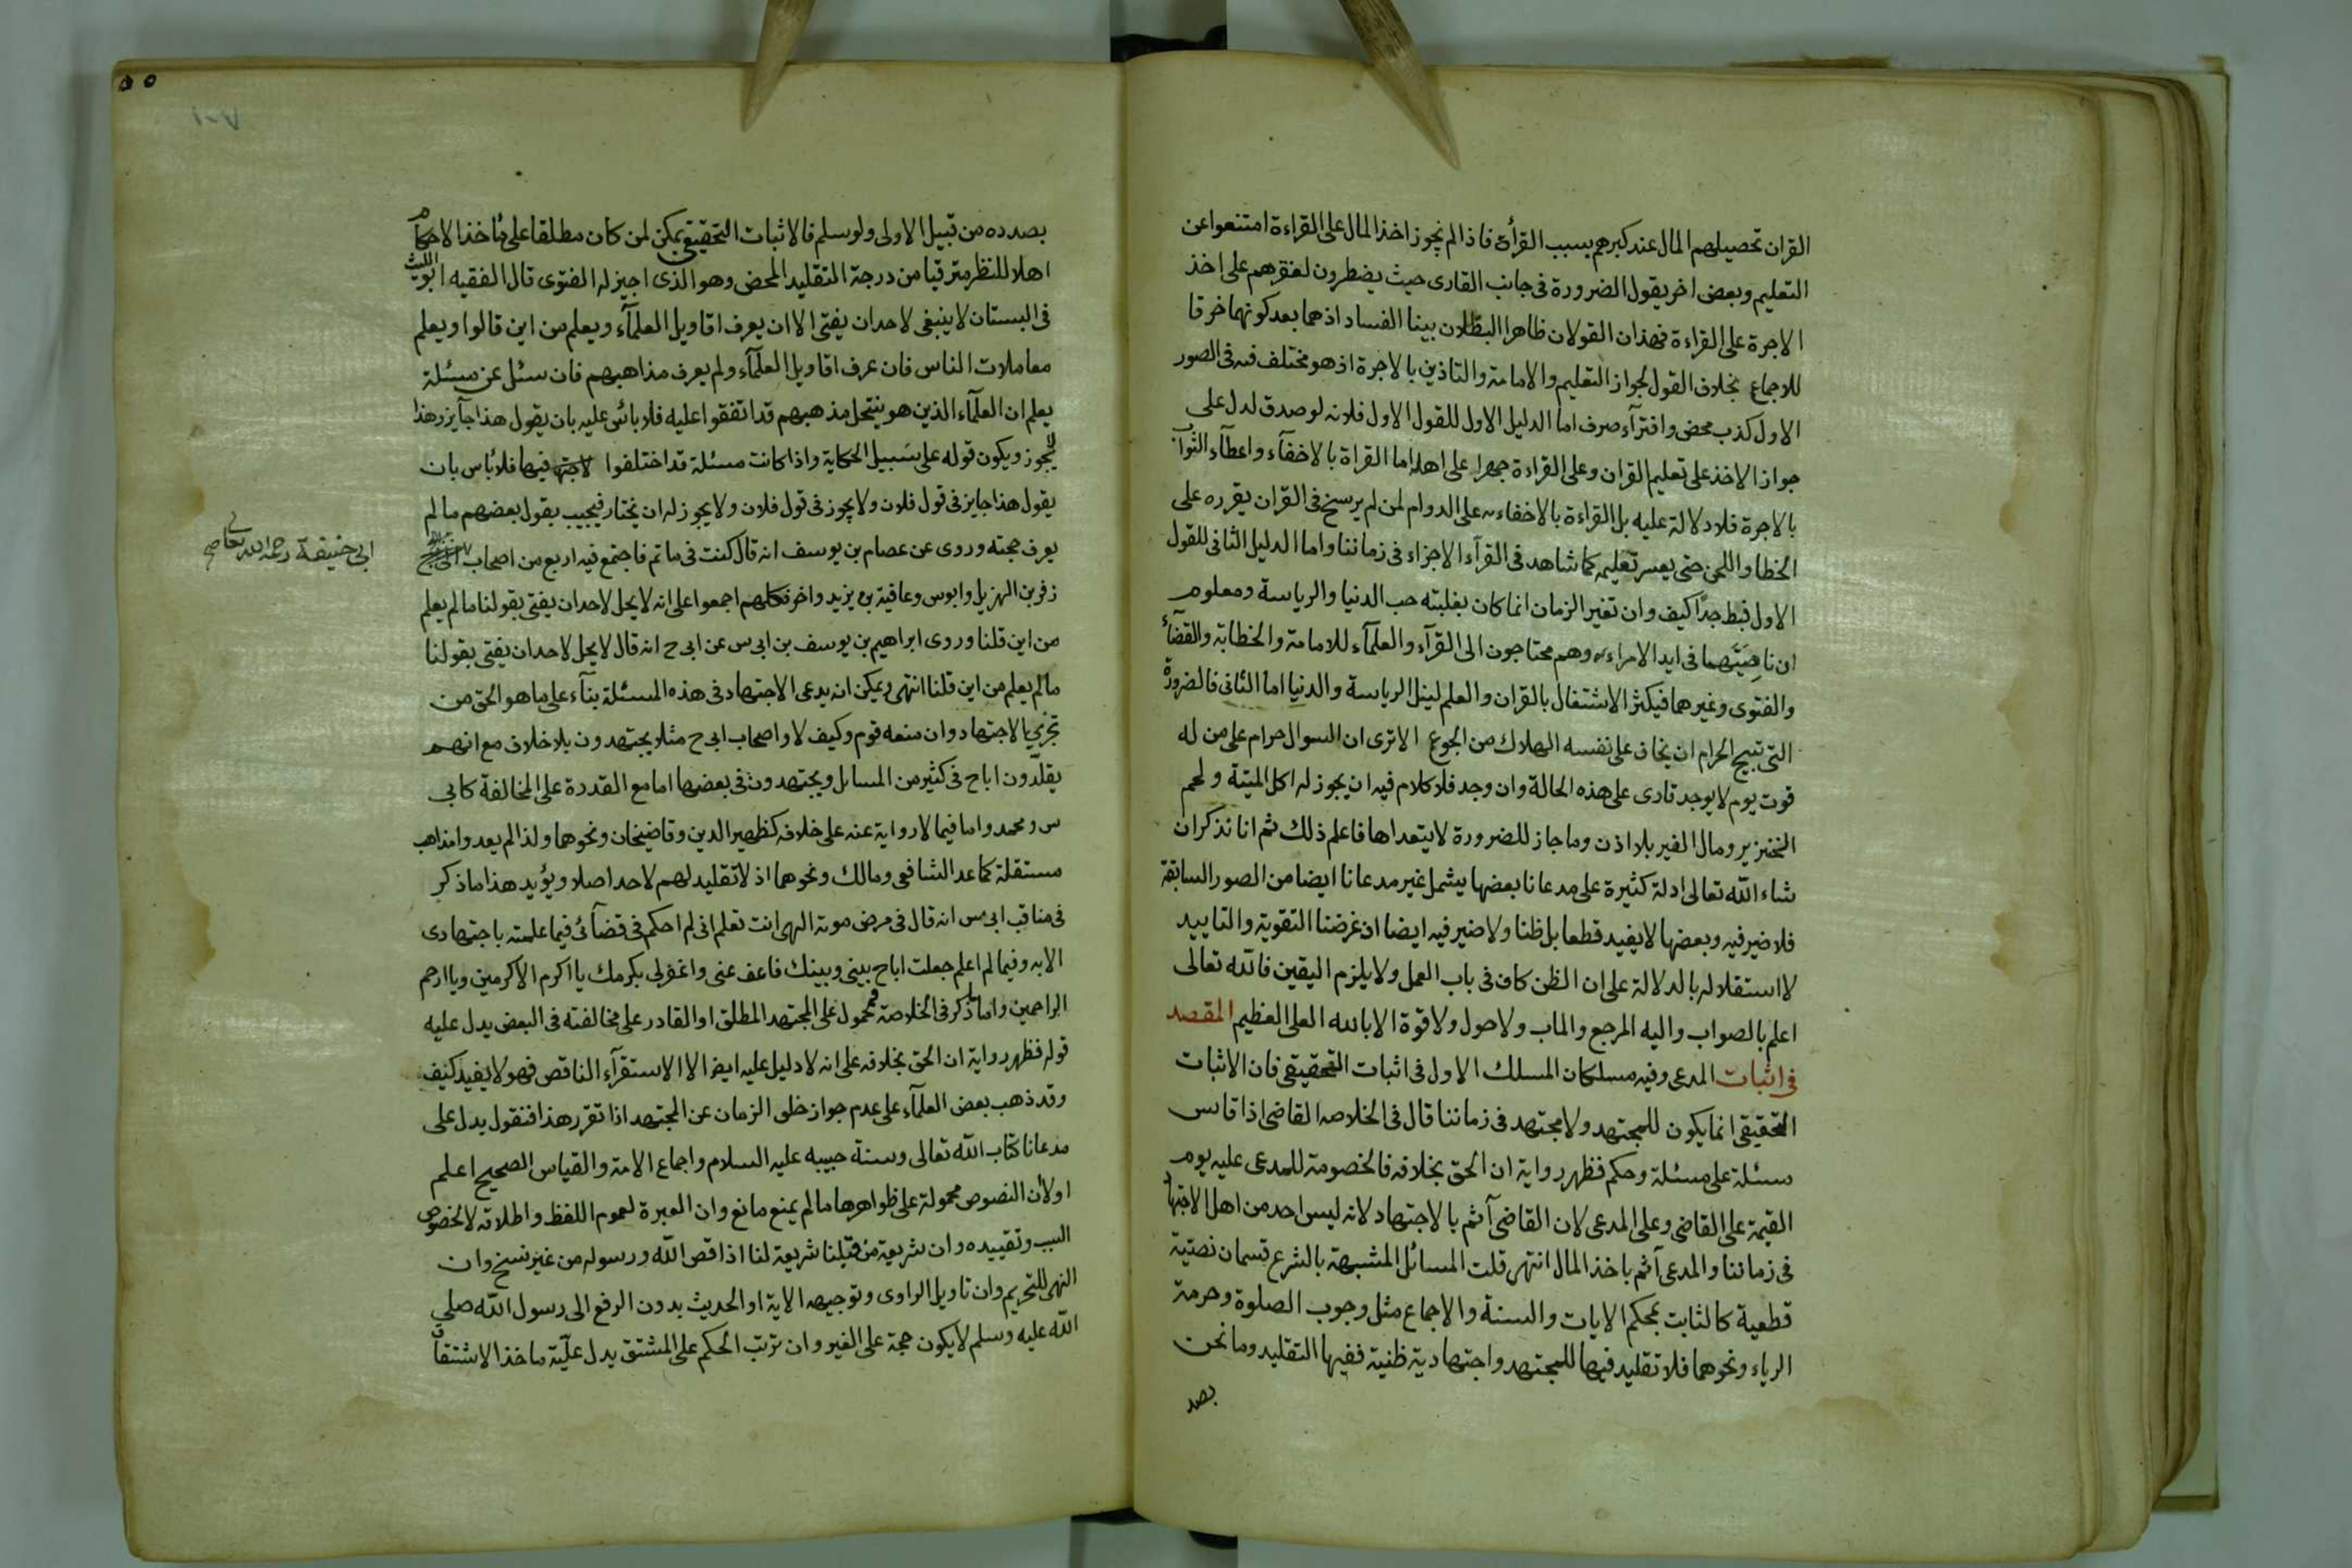 القران تحصيلهم المال عند كبرهم بسبب القرأة فاذا لم نجوز اخذ المال على القراءة امتنعوا عن
التعليم وبعض اخر يقول الضرورة فى جانب القارى حيث يضطرون لفقرهم على اخذ
الاجرة على القراءة فهذان القولان ظاهرا البطلان بينا الفساد اذهما بعد كونهما خرقا
للاجماع بخلاف القول بجواز التعليم والامامة والتاذين بالاجرة اذ هو مختلف فيه فى الصور
الاول كذب محض وافترآء صرف اما الدليل الاول للقول الاول فلانه لو صدق لدل على
جواز الاخذ على تعليم القران وعلى القراءة جهرا على اهله اما القراة بالاخفآء واعطآء الثواب
بالاجرة فلا دلالة عليه بل القراءة بالاخفاء على الدوام لمن لم يرسخ فى القران يقرره على
الخطا واللحن حتى يعسر تعليمه كما شاهد فى القرآء الاجزاء فى زماننا واما الدليل الثانى للقول
الاول فبط جدًّا كيف وان تغير الزمان انما كان بغلبته حب الدنيا والرياسة ومعلوم
ان ناصيتهما فى ايدا الامراء وهم محتاجون الى القرآء والعلمآء للامامة والخطابة والقضآء
والفتوى وغيرهما فيكثر الاشتغال بالقران والعلم لينل الرياسة والدنيا اما الثانى فالضرورة
التى تبيح الحرام ان يخاف على نفسه الهلاك من الجوع الا ترى ان السوال حرام على من له
قوت يوم لا يوجد قارى على هذه الحالة وان وجد فلا كلام فيه ان يجوز له اكل الميتة ولحم
الخنزير ومال الغير بلا اذن وما جاز للضرورة لا يتعداها فاعلم ذلك ثم انا نذكر ان
شاء الله تعالى ادلة كثيرة على مدعانا بعضها يشمل غير مدعانا ايضا من الصور السابقة
فلا ضير فيه وبعضها لا يفيد قطعا بل ظنا ولا ضير فيه ايضا اذ غرضنا التقوية والتاييد
لا استقلاله بالدلالة على ان الظن كاف فى باب العمل ولا يلزم اليقين فالله تعالى
اعلم بالصواب واليه المرجع والماب ولا حول ولا قوة الا بالله العلى العظيم المقصد
فى اثبات المدعى وفيه مسلكان المسلك الاول فى اثبات التحقيقى فان الاثبات
التحقيقى انما يكون للمجتهد ولا مجتهد فى زماننا قال فى الخلاصه القاضى اذا قاس
مسئلة على مسئلة وحكم فظهر رواية ان الحق بخلافه فالخصومة للمدعى عليه يوم
القيمة على القاضى وعلى المدعى لان القاضى آثم بالاجتهاد لانه ليس احد من اهل الاجتهاد
فى زماننا والمدعى آثم باخذ المال انتهى قلت المسائل المشبهة بالشرع قسمان نصتية
قطعية كالثابت بمحكم الايات والسنة والاجماع مثل وجوب الصلوة وحرمة
الرياء ونحوهما فلا تقليد فيها للمجتهد واجتهادية ظنية ففيها التقليد وما نحن
بصد
٥٥
بصدده من قبيل الاولى ولو سلم فالاثبات التحقيقى يمكن لمن كان مطلقا على مأخذ الاحكام
اهلا للنظر مترقيا من درجة التقليد المحض وهو الذى اجيز له الفتوى قال الفقيه ابو الليث
فى البستان لا ينبغى لاحد ان يفتى الا ان يعرف اقاويل العلمآء ويعلم من اين قالوا ويعلم
معاملات الناس فان عرف اقاويل العلمآء ولم يعرف مذاهبهم فان سئل عن مسئلة
يعلم ان العلمآء الذين هو ينتحل مذهبهم قد اتفقوا عليه فلا بائس عليه بان يقول هذا جآيز وهذا
لا يجوز ويكون قوله على سبيل الحكاية واذا كانت مسئلة قد اختلفوا فيها فلا باس بان
يقول هذا جايز فى قول فلان ولا يجوز فى قول فلان ولا يجوز له ان يختار فيجيب بقول بعضهم ما لم
يعرف حجته وروى عن عصام بن يوسف انه قال كنت فى ماتم فاجتمع فيه اربع من اصحاب
ابى حنيفة رحمه الله تعالى صح
زفر بن الهزيل وابوس وعافية بن يزيد واخر فكلهم اجمعوا على انه لا يحل لاحد ان يفتى بقولنا ما لم يعلم
من اين قلنا وروى ابراهيم بن يوسف بن ابى س عن ابى ح انه قال لا يحل لاحد ان يفتى بقولنا
ما لم يعلم من اين قلنا انتهى ويمكن ان يدعى الاجتهاد فى هذه المسئلة بنآء على ما هو الحق من
تجزى الاجتهاد وان منعه قوم وكيف لا واصحاب ابى ح مثلا يجتهدون بلا خلاف مع انهم
يقلّدون اباح فى كثير من المسائل ويجتهدون فى بعضها اما مع القدرة على المخالفة كابى
س ومحمد واما فيما لا رواية عنه على خلافه كظهير الدين وقاضيخان ونحوهما ولذا لم يعدوا مذاهب
مستقلة كما عد الشافعى ومالك ونحوهما اذ لا تقليد لهم لاحد اصلا ويؤيد هذا ما ذكر
فى مناقب ابى س انه قال فى مرض موته الهى انت تعلم انى لم احكم فى قضآئى فيما علمته باجتهادى
الا به وفيما لم اعلم جعلت اباح بينى وبينك فاعف عنى واغفر لى بكرمك يا اكرم الاكرمين ويا ارحم
الراحمين واما ما ذكر فى الخلاصة فمحمول على المجتهد المطلق او القادر على مخالفته فى البعض يدل عليه
قوله فظهر رواية ان الحق بخلافه على انه لا دليل عليه ايضا الا الاستقرآء الناقص فهو لا يفيد كيف
وقد ذهب بعض العلمآء على عدم جواز خلى الزمان عن المجتهد اذا تقرر هذا فنقول يدل على
مدعانا كتاب الله تعالى وسنة حبيبه عليه السلام واجماع الامة والقياس الصحيح اعلم
اولا ان النصوص محمولة على ظواهرها ما لم يمنع مانع وان العبرة لعموم اللفظ واطلاقه لا لخصوص
السبب وتقييده وان شريعة من قبلنا شريعة لنا اذا قص الله ورسوله من غير نسخ وان
النهى للتحريم وان تاويل الراوى وتوجيهه الاية او الحديث بدون الرفع الى رسول الله صلى
الله عليه وسلم لا يكون حجة على الغير وان ترتب الحكم على المشتق يدل علّية ماخذ الاشتقاق